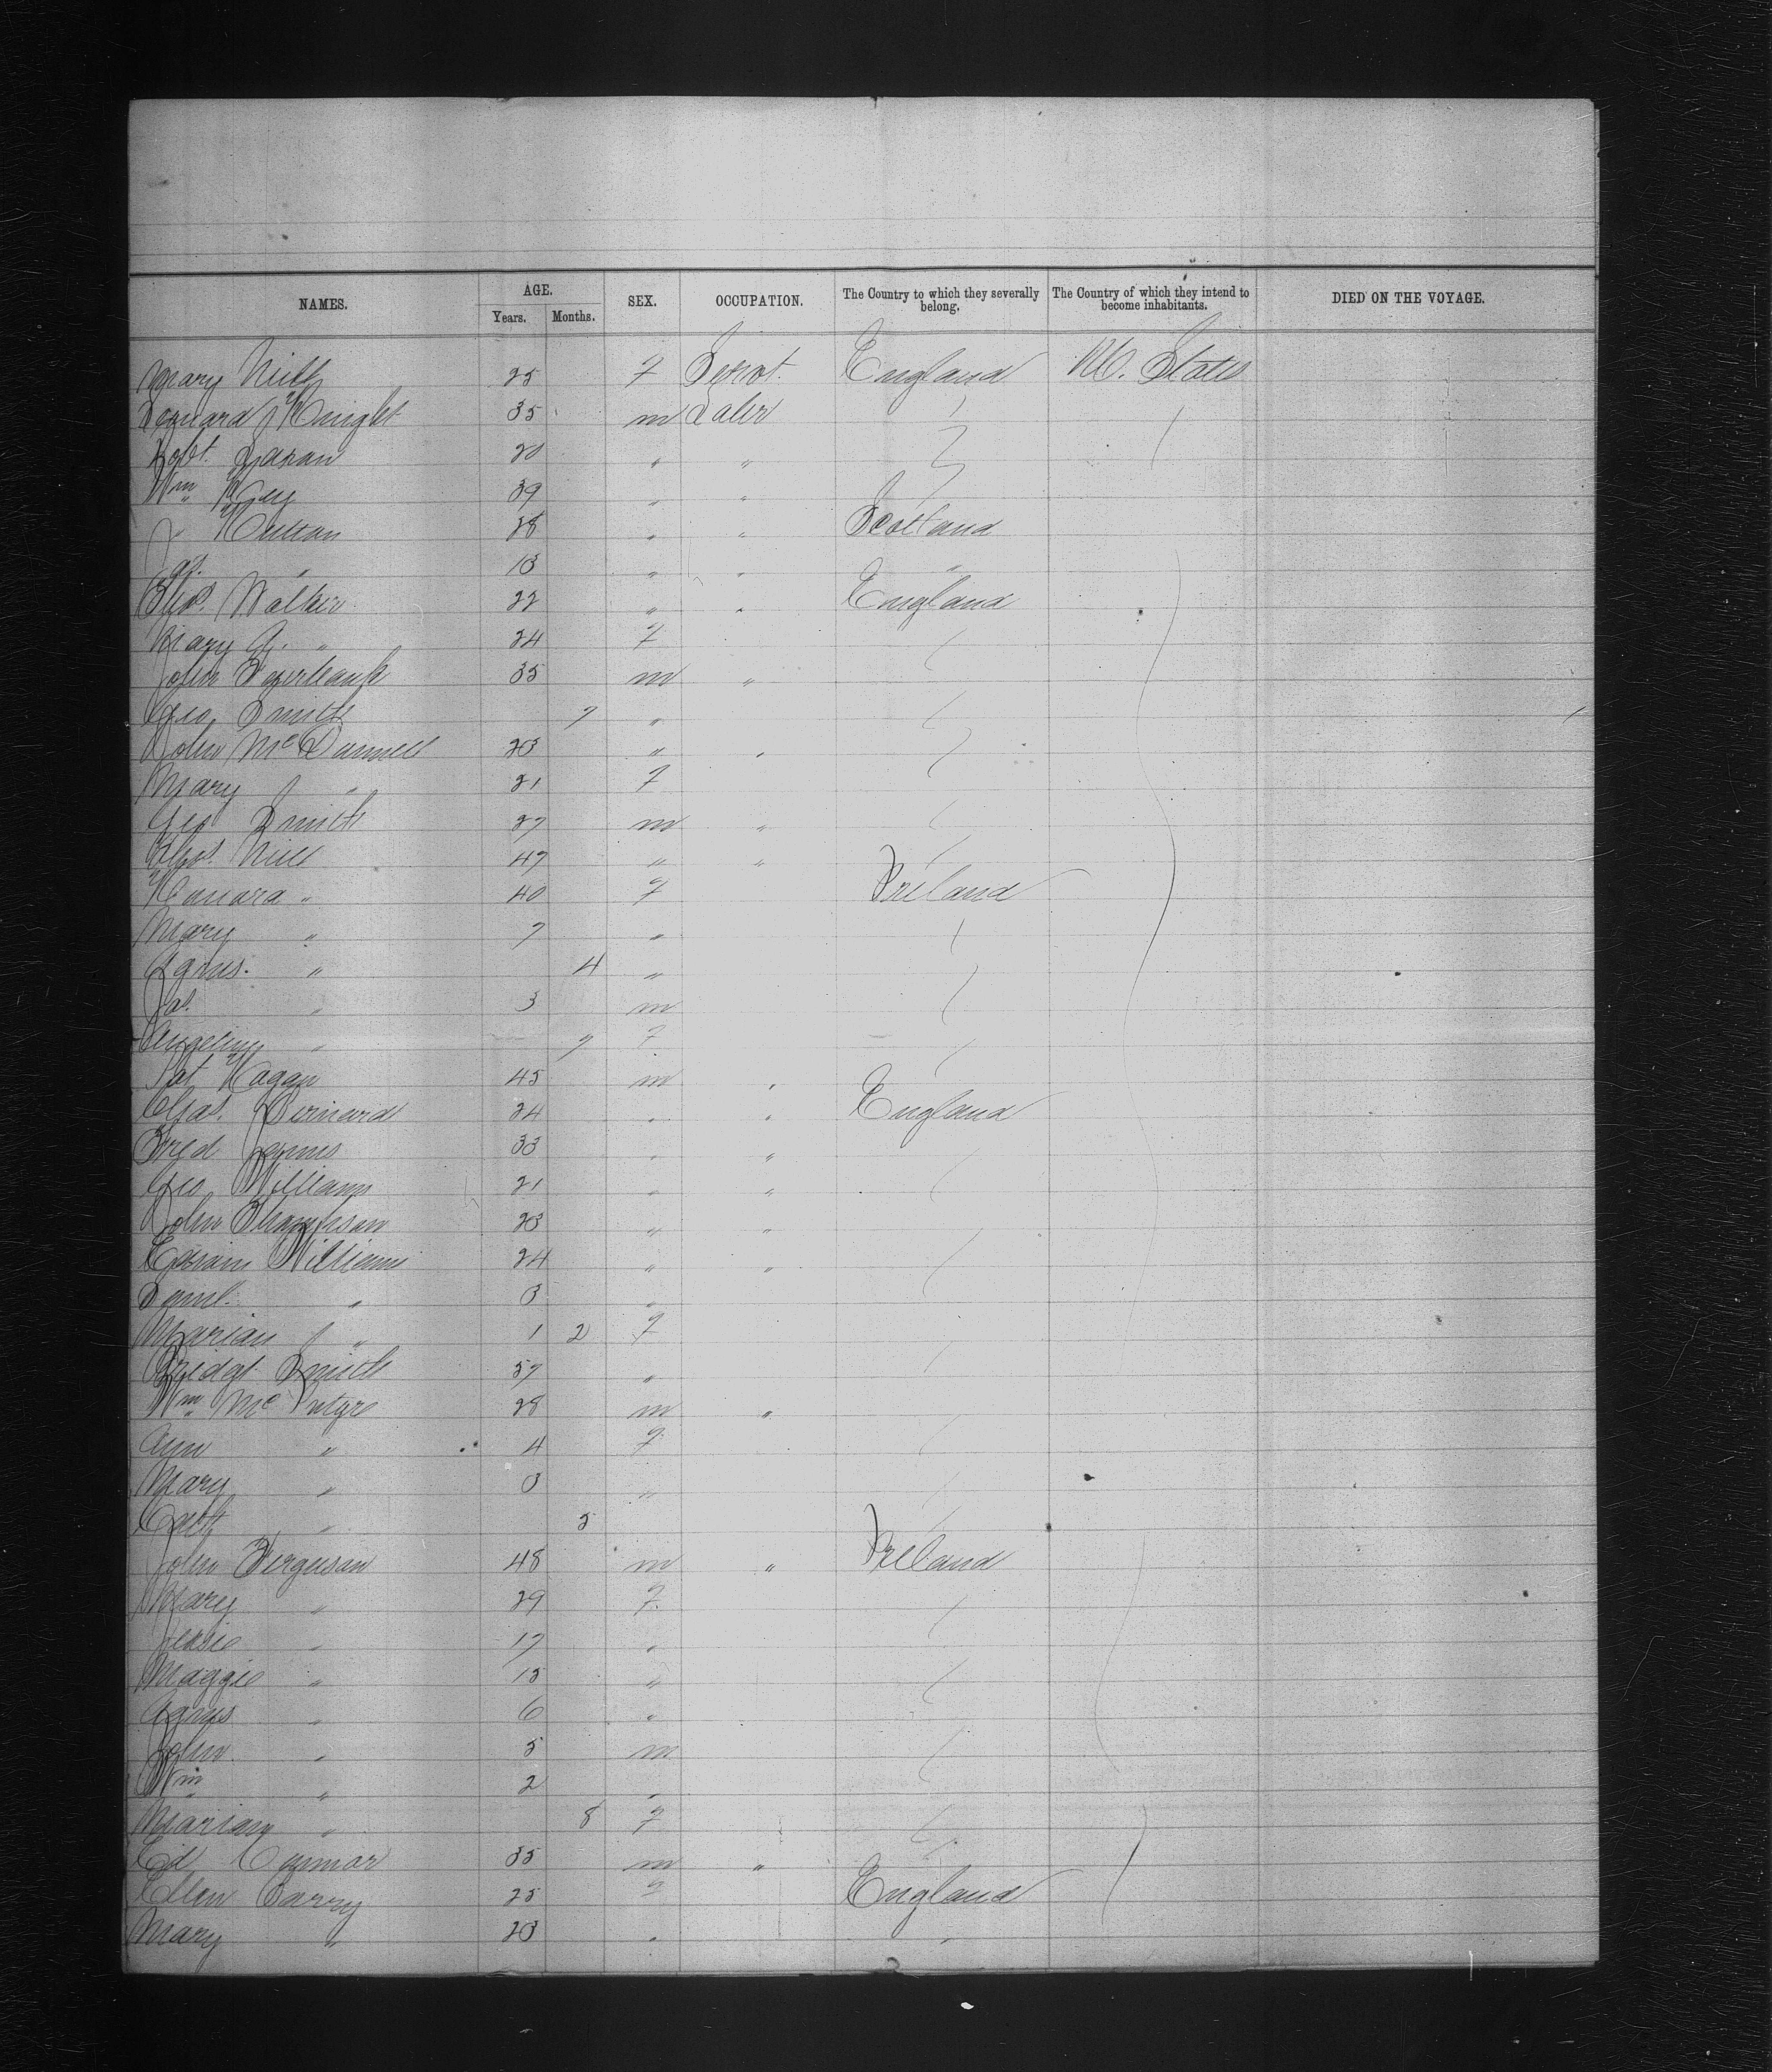 NAMES. AGE. SEX. OCCUPATION. The Country to which they severally belong. The Country of which they intend to become inhabitants. DIED ON THE VOYAGE.
Years. Months.
Mary 25 F Servt. England U. States
Leonard Knight 35 m Labr
Robt. 20 " "
Wm 39 " "
J. 28 " " Scotland
Jas. " 13 " " "
Thos. Walker 22 " " England
Mary A. " 24 F
John 35 m "
Geo. Smith 7 "
John McDonnell 23 " "
Mary " 21 F
Geo Smith 27 m "
47 " "
Honora " 40 F Ireland
Mary " 7 "
Agnes. " 4 "
Jas. " 3 m
Angelina " 9 F
Pat Hagan 45 m "
Chas. Bernard 24 " " England
Fred 33 " "
Geo. Williams 21 " "
John Thompson 23 " "
Williams 24 " "
Saml. " 3 "
Marian " 1 2 F
Bridgt Smith 57 "
Wm McIntyre 28 m "
Ann " 4 F
Mary " 3 "
" 5
John Ferguson 48 m " Ireland
Mary " 29 F
Jessie " 17 "
Maggie " 15 "
Agnes " 6 "
John " 5 m
Wm " 2 "
Mariam " 8 F
Ed 35 m "
Ellen Barry 25 F England
Mary " 23 " "